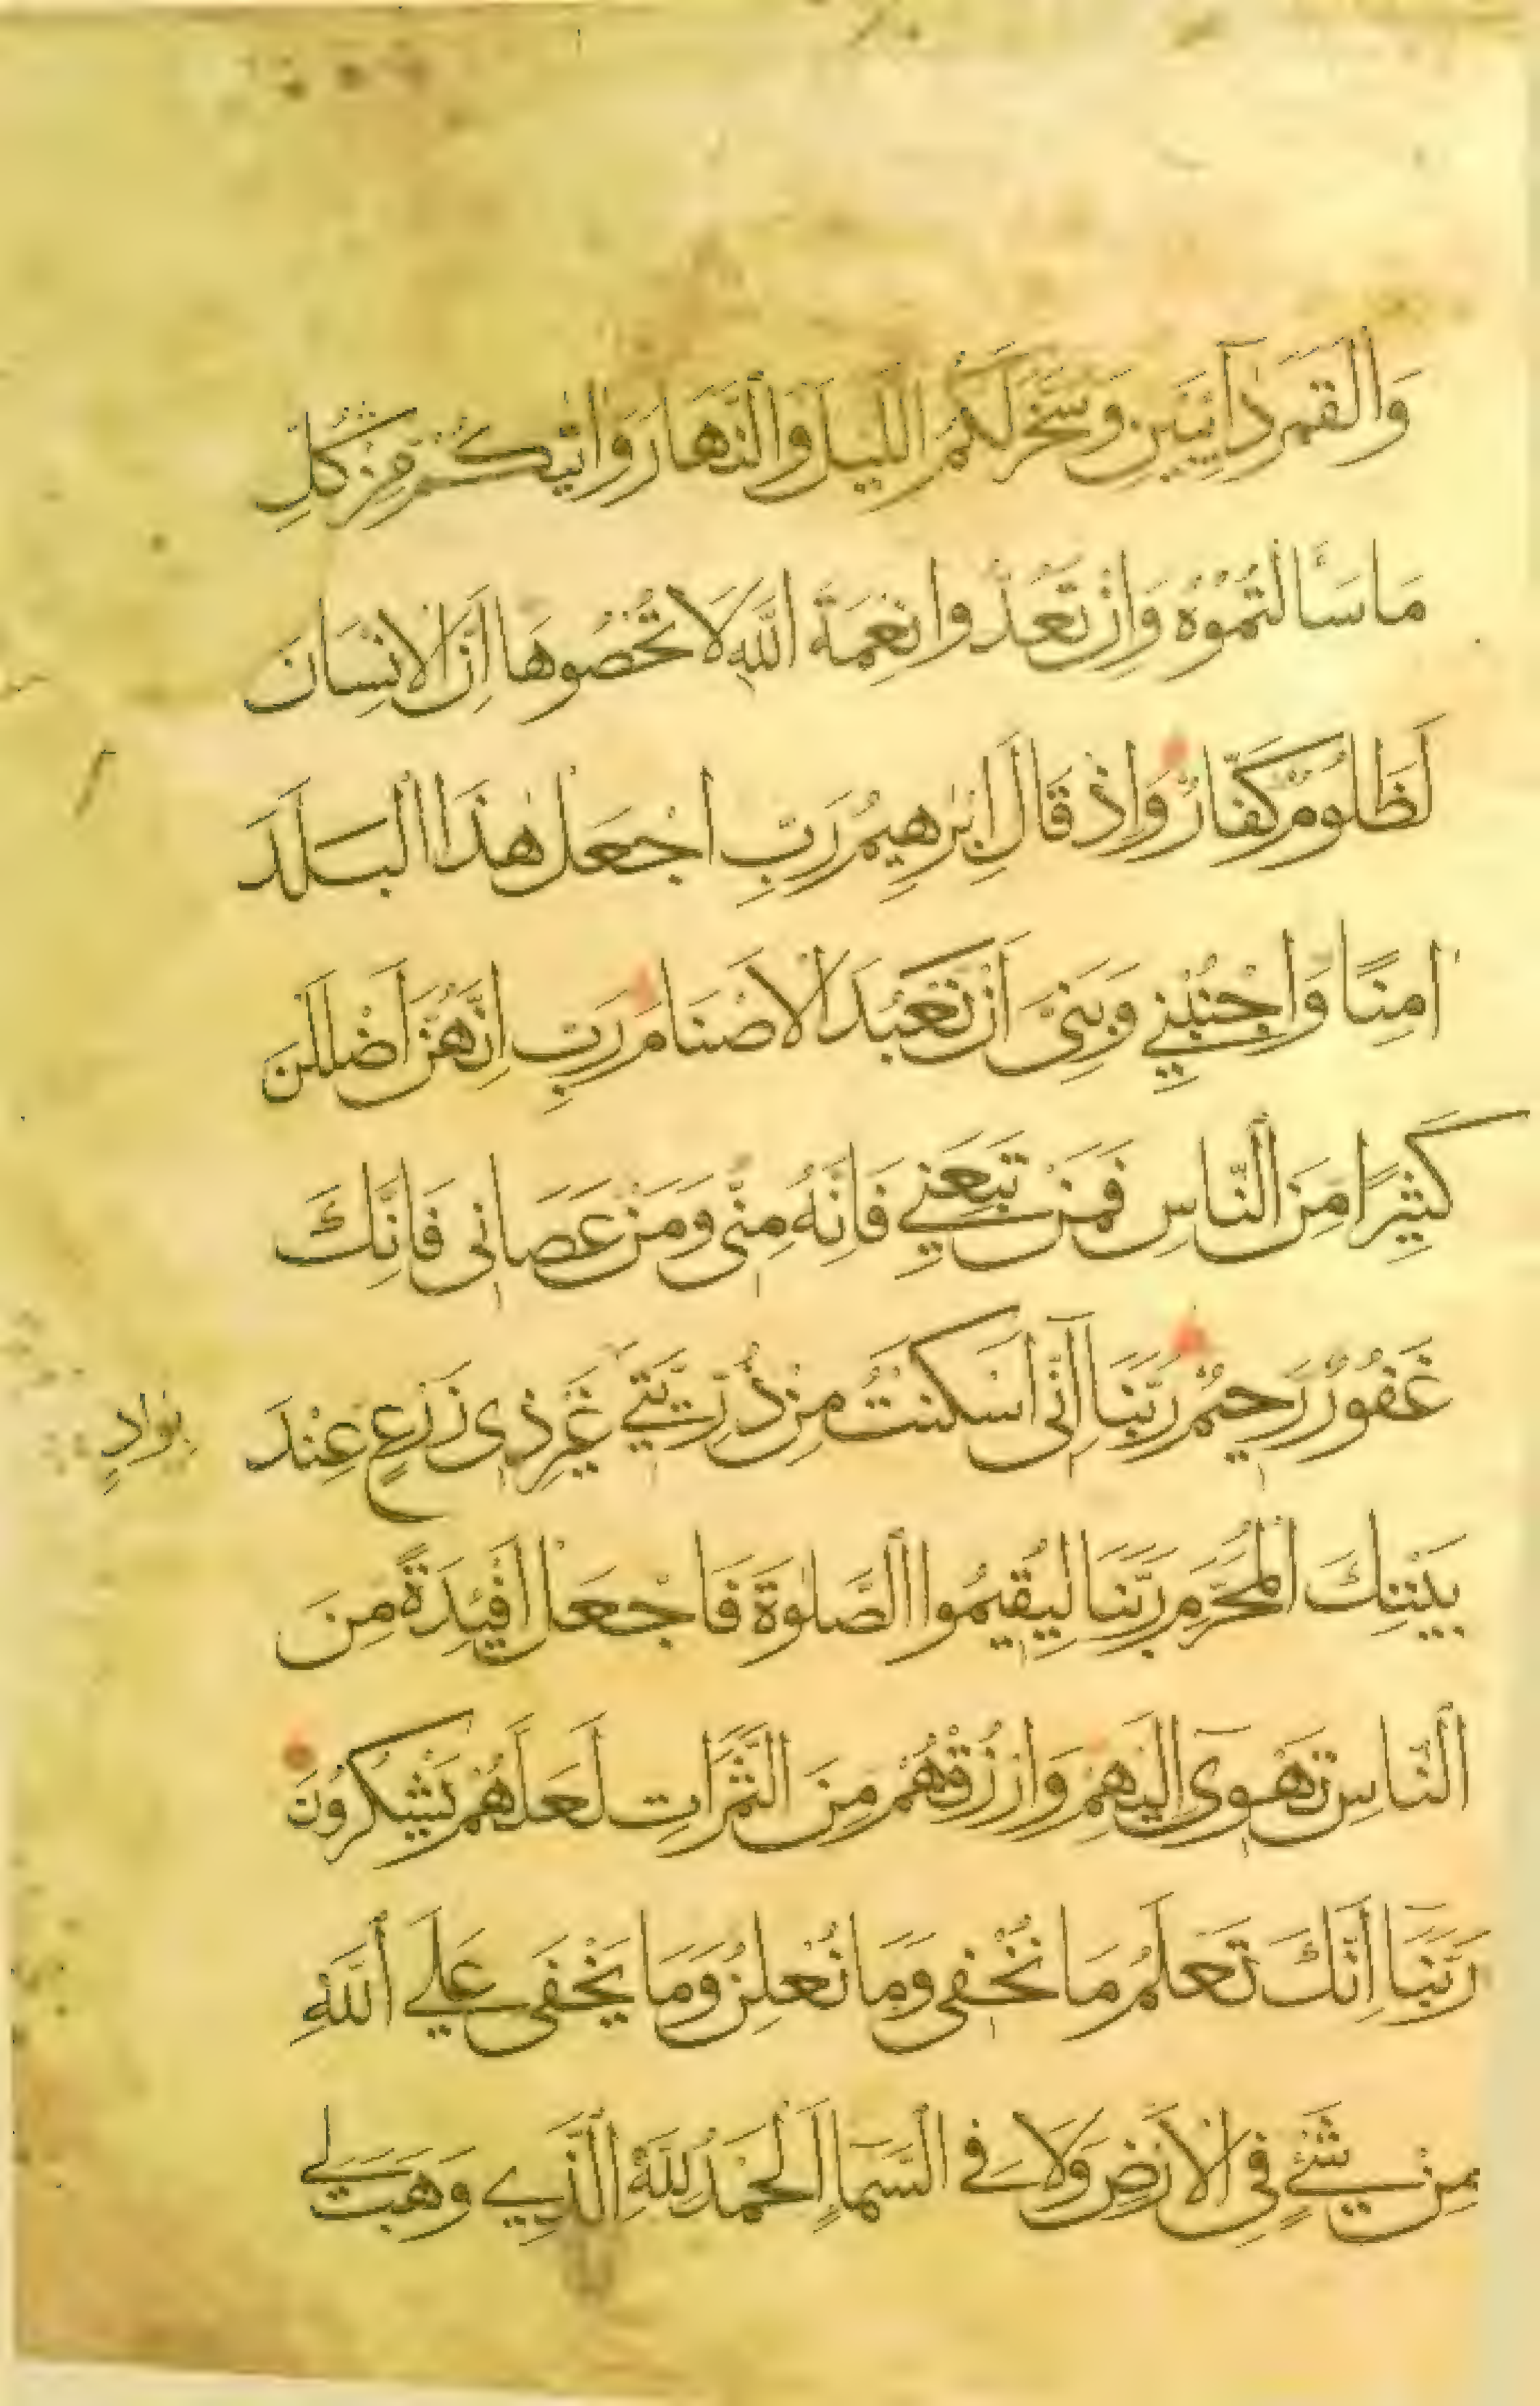 وَالْقَمَرَ دَآئِبَيْنِ وَسَخَّرَ لَكُمُ اللَّيْلَ وَالنَّهَارَ وَاٰتٰيكُمْ مِنْ كُلِّ
مَا سَأَلْتُمُوْهُ وَاِنْ تَعُدُّوا نِعْمَةَ اللّٰهِ لَا تُحْصُوهَا اِنَّ الْاِنْسَانَ
لَظَلُومٌ كَفَّارٌ وَاِذْ قَالَ اِبْرٰهِيمُ رَبِّ اجْعَلْ هٰذَا الْبَلَدَ
اٰمِنًا وَاجْنُبْنِي وَبَنِيَّ اَنْ نَعْبُدَ الْاَصْنَامَ رَبِّ اِنَّهُنَّ اَضْلَلْنَ
كَثِيْرًا مِنَ النَّاسِ فَمَنْ تَبِعَنِي فَاِنَّهُ مِنِّى وَمَنْ عَصَانِى فَاِنَّكَ
غَفُورٌ رَحِيمٌ رَبَّنَا اِنِّى اَسْكَنْتُ مِنْ ذُرِّيَّتِي غَيْرِ ذِى زَرْعٍ عِنْدَ
بِوَادٍ
بَيْتِكَ الْمُحَرَّمِ رَبَّنَا لِيُقِيمُوا الصَّلٰوةَ فَاجْعَلْ اَفْئِدَةً مِنَ
النَّاسِ تَهْوِىٓ اِلَيْهِمْ وَارْزُقْهُمْ مِنَ الثَّمَرَاتِ لَعَلَّهُمْ يَشْكُرُونَ
رَبَّنَا اِنَّكَ تَعْلَمُ مَا نُخْفِى وَمَا نُعْلِنُ وَمَا يَخْفَى عَلَي اللّٰهِ
مِنْ شَيْءٍ فِى الْاَرْضِ وَلَا فِى السَّمَاءِ اَلْحَمْدُ لِلّٰهِ الَّذِي وَهَبَ لِي